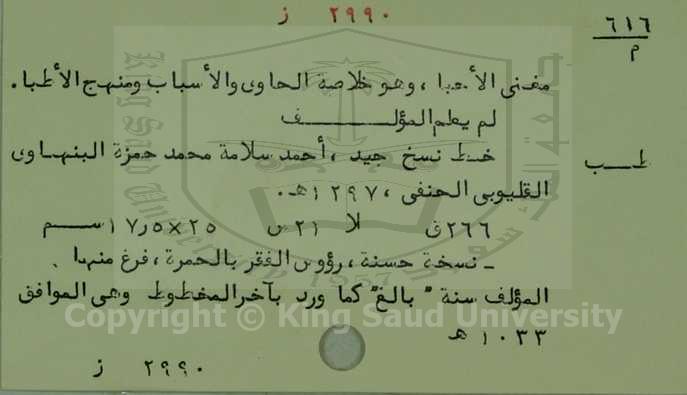 ٢٩٩٠ ز
٦١٦
م
مغنى الأحبا ، وهو خلاصة الحاوى والأسباب ومنهج الأطبا.
لم يعلم المؤلــــــف
طــب
خــط نسخ جيد ، أحمد سلامة محمد حمزة البنهـاوى
القليوبى الحنفى ، ١٢٩٧هـ.
٢٦٦ق ٢١س ٢٥×١٧٫٥ ســم
ـ نسخة حسنة ، رؤوس الفقر بالحمرة ، فرغ منهـا
المؤلف سنة " بالغ" كما ورد بآخر المخطوط وهى الموافق
١٠٣٣ هـ
٢٩٩٠ ز
Copyright © King Saud University